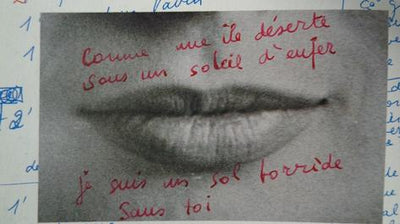 Comme une île déserte
sous un soleil d'enfer
je suis un sol torride
Sans toi
1
1
2'
1'
de